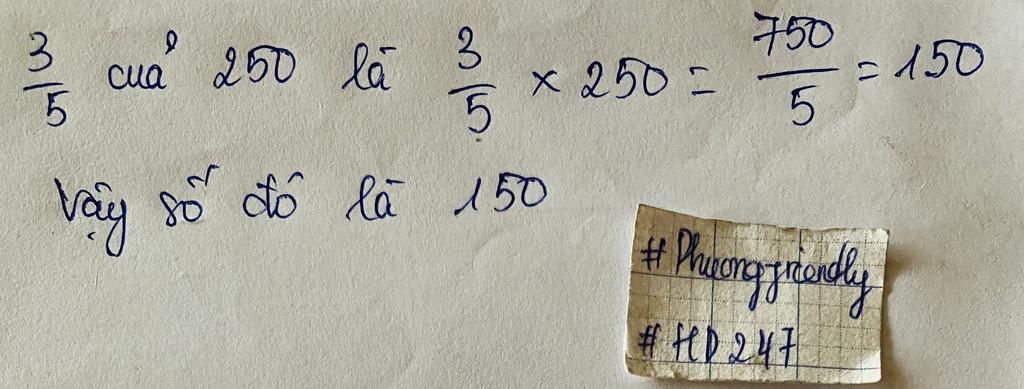 3/5 của 250 là 3/5 × 250 = 750/5 = 150
Vậy số đó là 150
# Phuong-friendly
# HD 247